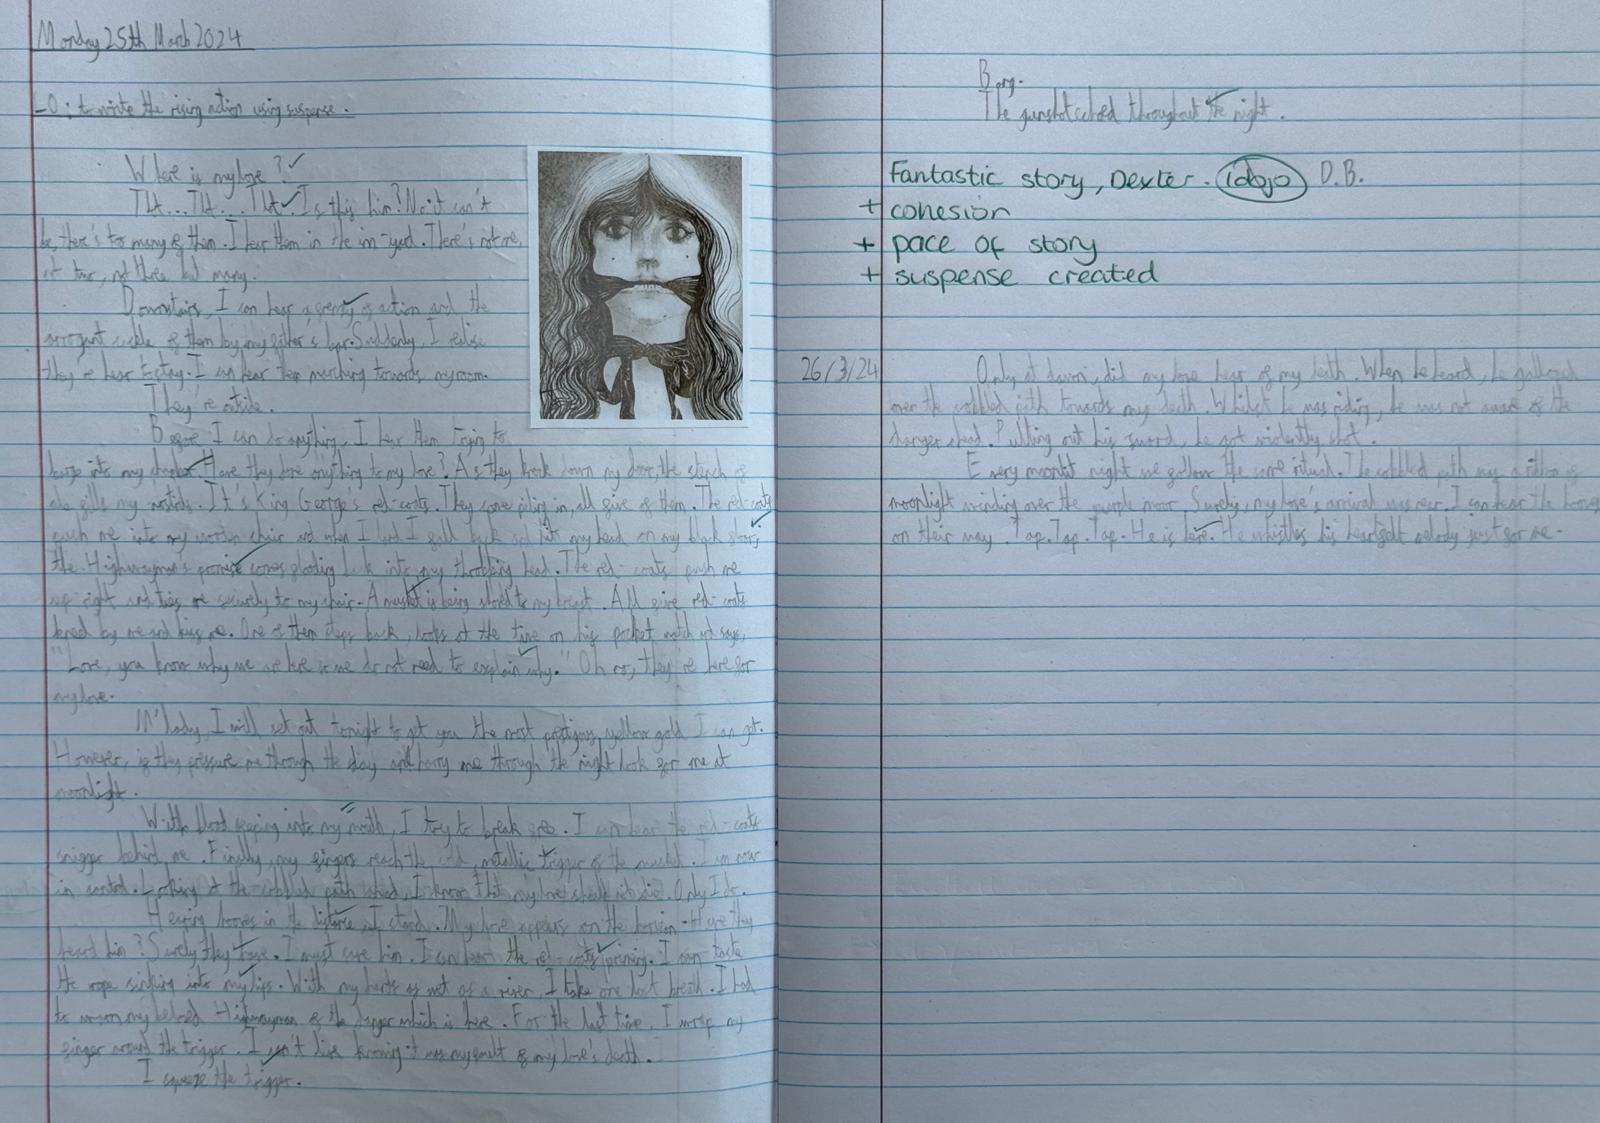 Monday 25th March 2024
LO: to write the rising action using suspense.
Where is my love?
Tlt...Tlt...Tlt. Is this him? No it can't
be, there's to many of them. I hear them in the inn-yard. There's not one,
not two, not three but many.
Downstairs, I can hear a frenzy of action and the
arrogant cackle of them by my father's bar. Suddenly, I realise
they're hear to stay. I can hear them marching towards my room.
They're outside.
Before I can do anything, I hear them trying to
barge into my chamber. Have they done anything to my love? As they break down my door, the stench of
ale fills my nostrils. It's King George's red-coats. They come piling in, all five of them. The red-coats
push me into my wooden chair and when I land I fall back and hit my head on my black
the Highwayman's promise comes flooding back into my throbbing head. The red-coats push me
up right and ties me securely to my chair. A musket is being to my breast. All five red-coats
by me and kiss me. One of them steps back, looks at the time on his pocket watch and says,
"Love, you know why we are here so we do not need to explain why." Oh no, they're here for
my love.
M'lady, I will set out tonight to get you the most prestigious, yellow gold I can get.
However, if they pressure me through the day and harry me through the night look for me at
moonlight.
With blood seeping into my mouth, I try to break free. I can hear the red-coats
snigger behind me. Finally, my fingers reach the cold, metallic trigger of the musket. I am now
in control. Looking at the cobbled path ahead, I know that my love should not die. Only I do.
Hearing hooves in the distance, I stand. My love appears on the horizon. Have they
heard him? Surely they have. I must save him. I can hear the red-coats priming. I can taste
the rope sinking into my lips. With my hands as wet as a river, I take one last breath. I had
to warn my beloved Highwayman of the danger which is here. For the last time, I wrap my
finger around the trigger. I can't live knowing it was my fault of my love's death.
I squeeze the trigger.
Bang.
The gunshot echoed throughout the night.
Fantastic story, Dexter. 1dojo D.B.
+ cohesion
+ pace of story
+ suspense created
26/3/24 Only at dawn, did my love hear of my death. When he heard, he galloped
over the cobbled path towards my death. Whilst he was riding, he was not aware of the
danger ahead. Pulling out his sword, he got violently shot.
Every moonlit night we follow the same ritual. The cobbled path was a ribbon of
moonlight winding over the purple moor. Surely, my love's arrival was near. I can hear the hooves
on their way. Tap. Tap. Tap. He is here. He whistles his heartfelt melody just for me.